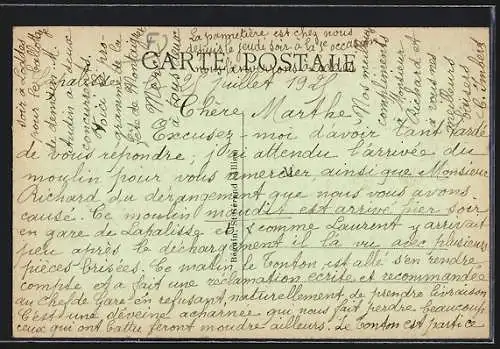 La panneière est chez nous
depuis le jeudi soir à la 1e occasion
nous l'enverrons
CARTE POSTALE
Lapalisse 25 juillet 1925
Chère Marthe
Excusez-moi d'avoir tant tardé
de vous répondre; j'ai attendu l'arrivée du
moulin pour vous remercier ainsi que Monsieur
Richard du dérangement que nous vous avons
causé. Ce moulin maudit est arrivé hier soir
en gare de Lapalisse et comme Laurent y arrivait
peu après le déchargement il la vu avec plusieurs
pièces brisées. Ce matin le Tonton est allé s'en rendre
compte et a fait une réclamation écrite et recommandée
au Chef de Gare en refusant, naturellement, de prendre livraison
C'est une déveine acharnée qui nous fait perdre beaucoup
ceux qui ont battu feront moudre ailleurs. Le Tonton est parti ce
soir à
pour le ballot
de demain. M.
Voici le pro-
gramme de la
fête de
Merci
à tous deux
Nos meilleurs
compliments
à Monsieur
Richard et
à vous nos
meilleurs
baisers